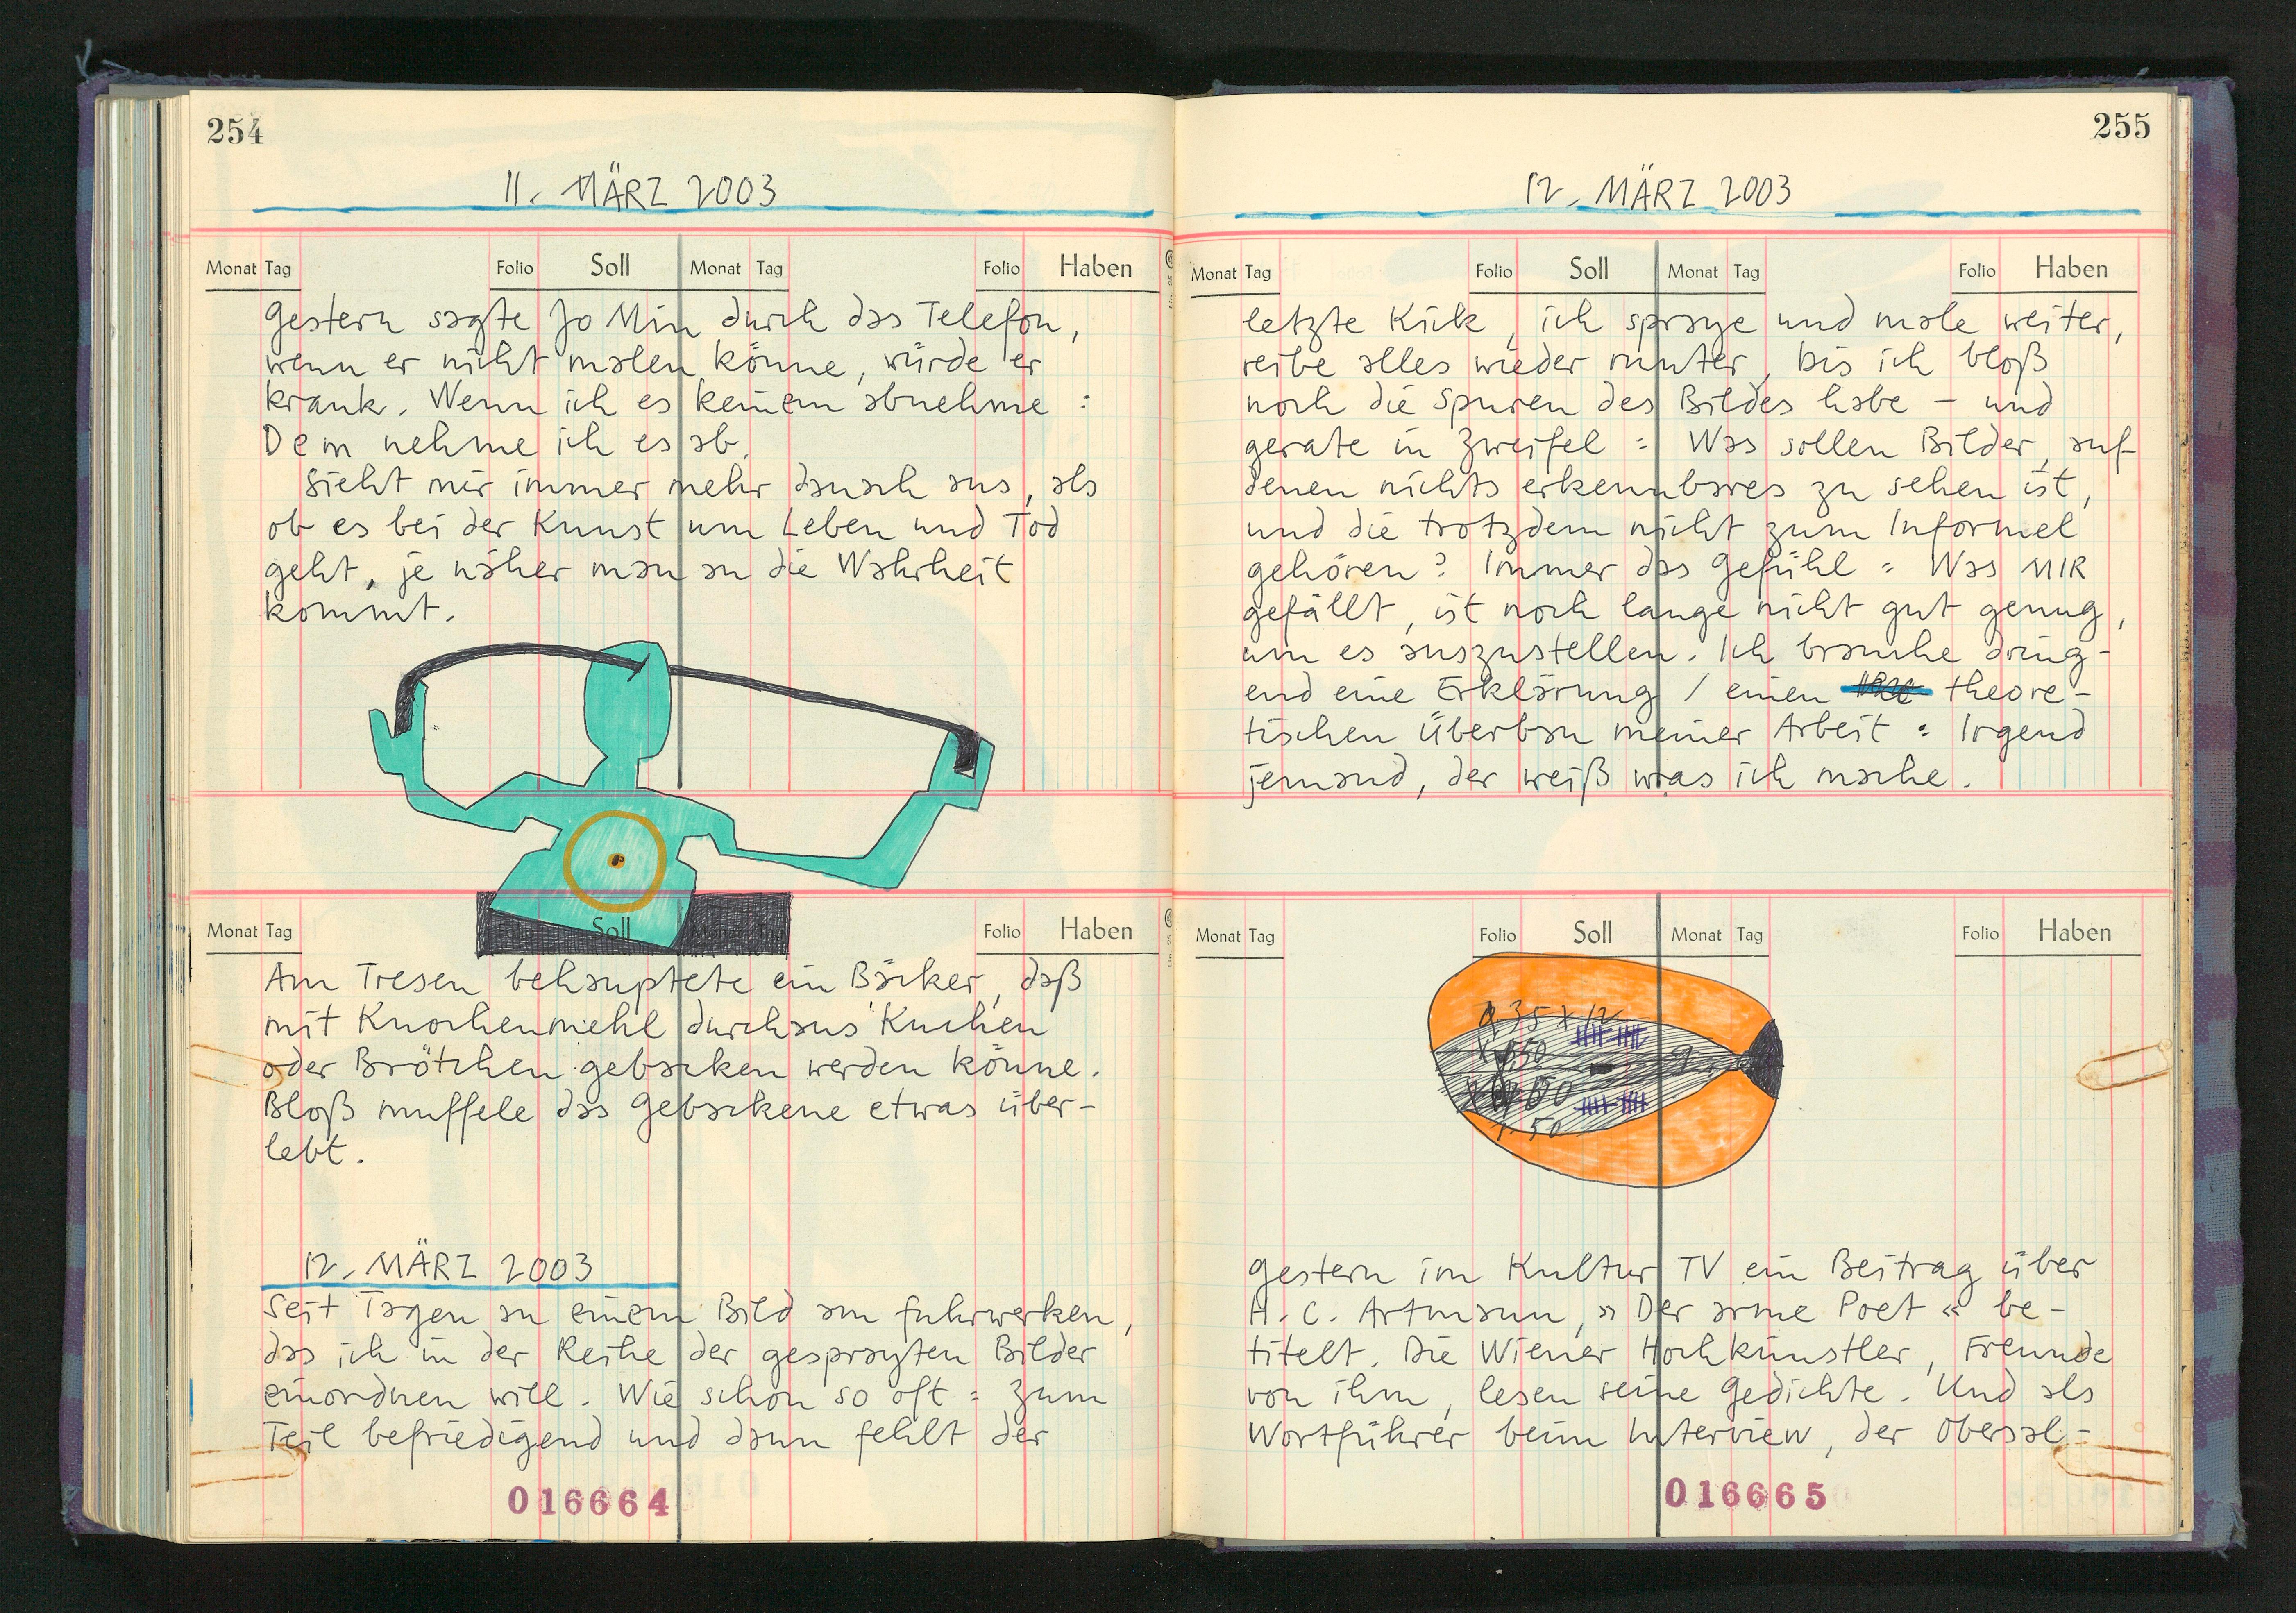 254
11. MÄRZ 2003
Monat Tag Folio Soll Monat Tag Folio Haben
Gestern sagte Jo Min durch das Telefon,
wenn er nicht malen könne, würde er
krank. Wenn ich es keinem abnehme :
Dem nehme ich es ab.
Sieht mir immer mehr danach aus, als
ob es bei der Kunst um Leben und Tod
geht, je näher man an die Wahrheit
kommt.
Monat Tag Soll Monat Tag Folio Haben
Am Tresen behauptete ein Bäcker, daß
mit Knochenmehl durchaus Kuchen
oder Brötchen gebacken werden könne.
Bloß muffele das Gebackene etwas über-
lebt.
12. MÄRZ 2003
Seit Tagen an einem Bild am fuhrwerken,
das ich in der Reihe der gesprayten Bilder
einordnen will. Wie schon so oft : Zum
Teil befriedigend und dann fehlt der
016664
255
12. MÄRZ 2003
Monat Tag Folio Soll Monat Tag Folio Haben
letzte Kick, ich spraye und male weiter,
reibe alles wieder runter, bis ich bloß
noch die Spuren des Bildes habe – und
gerate in Zweifel : Was sollen Bilder, auf
denen nichts erkennbares zu sehen ist,
und die trotzdem nicht zum Informel
gehören? Immer das Gefühl : Was MIR
gefällt, ist noch lange nicht gut genug,
um es auszustellen. Ich brauche dring-
end eine Erklärung / einen theore-
tischen Überbau meiner Arbeit : Irgend
jemand, der weiß was ich mache.
Monat Tag Folio Soll Monat Tag Folio Haben
35 x 12
50
50
Gestern im Kultur TV ein Beitrag über
H. C. Artmann, » Der arme Poet « be-
titelt. Die Wiener Hochkünstler, Freunde
von ihm, lesen seine Gedichte. Und als
Wortführer beim Interview, der Obersal-
016665